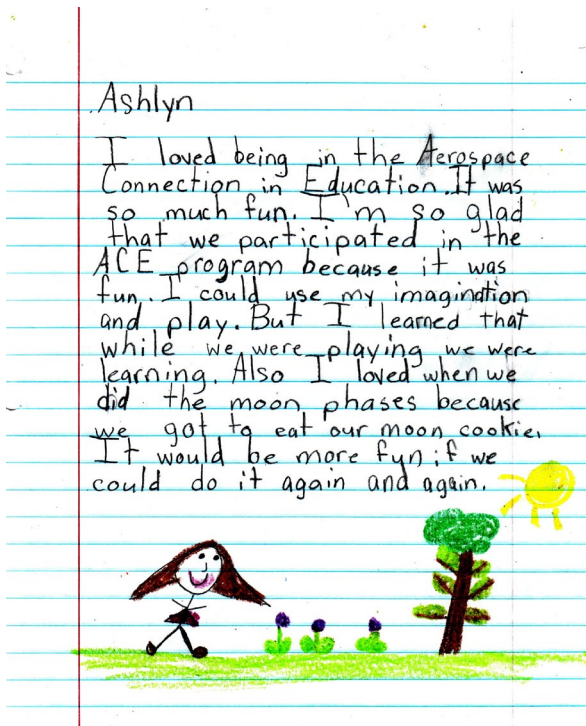 Ashlyn
I loved being in the Aerospace
Connection in Education. It was
so much fun. I'm so glad
that we participated in the
ACE program because it was
fun. I could use my imagination
and play. But I learned that
while we were playing we were
learning. Also I loved when we
did the moon phases because
we got to eat our moon cookie.
It would be more fun if we
could do it again and again.